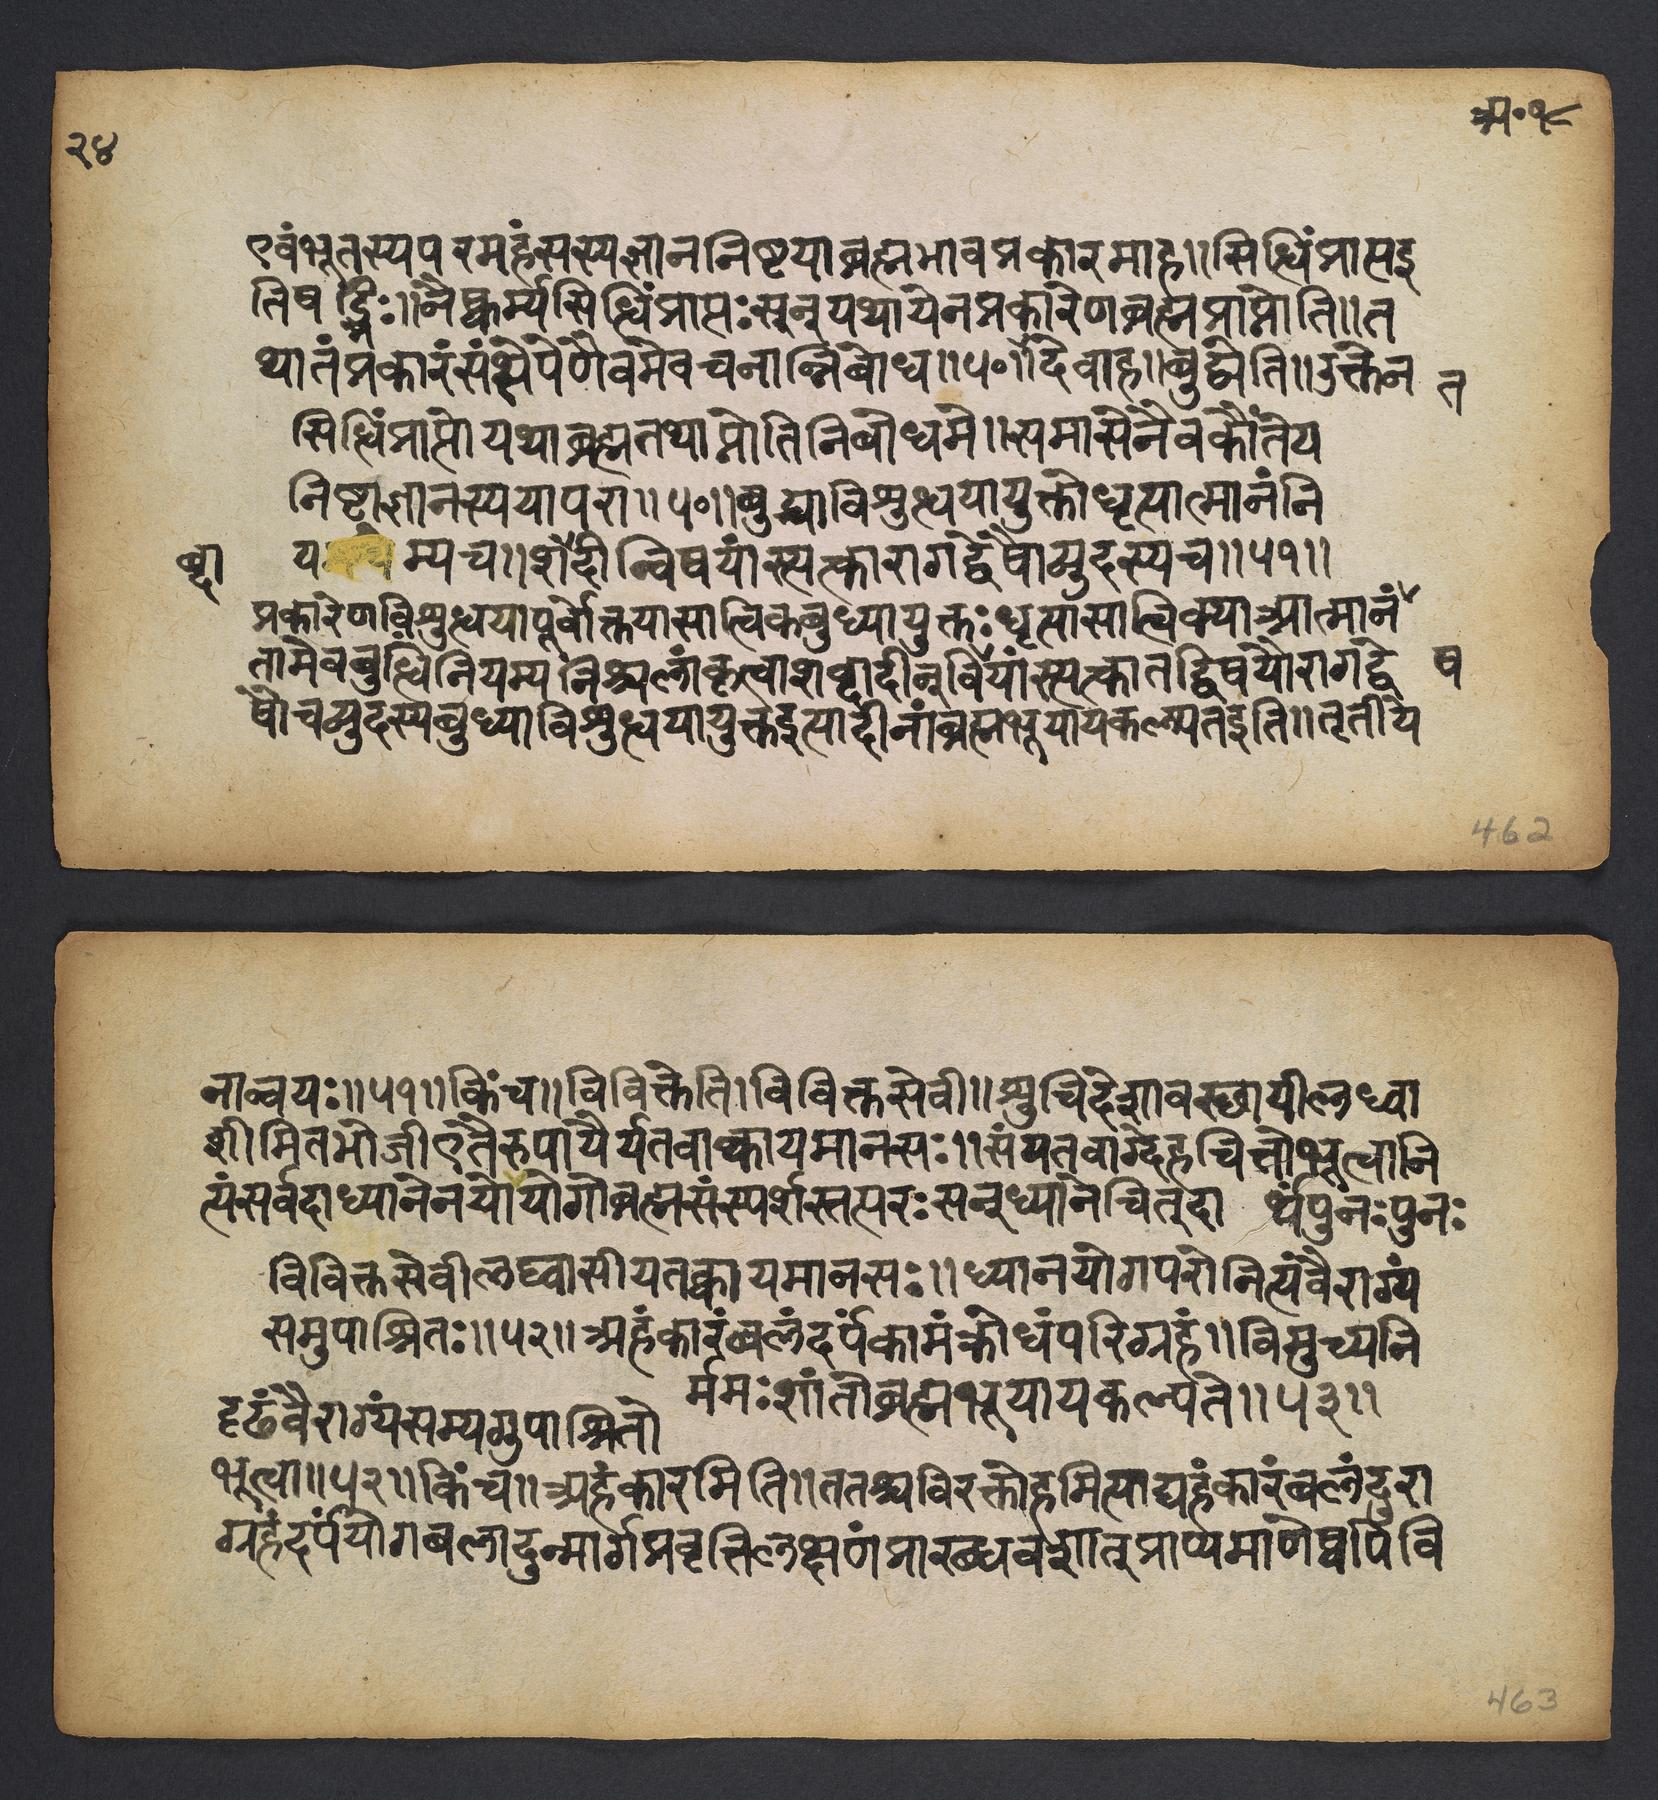 २४
अ॰१८
एवंभूतस्यपरमहंसस्यज्ञाननिष्टयाब्रह्मभावप्रकारमाह॥सिध्धिंप्राप्तइ
तिषड्भिः॥नैष्कर्म्यसिध्धिंप्राप्तःसन्यथायेनप्रकारेणब्रह्मप्राप्नोति॥त
थातंप्रकारंसंक्षेपेणैवमेवचनान्निबोध॥५०॥दिवाह॥बुद्ध्येति॥उक्तेन
त
सिध्धिंप्राप्तोयथाब्रह्मतथाप्नोतिनिबोधमे॥समासेनैवकौंतेय
निष्टाज्ञानस्ययापरा॥५०॥बुद्ध्याविशुध्धयायुक्तोधृत्यात्मानंनि
ब्दा
यम्यच॥शदीन्विषयांस्त्यत्कारागद्वेषौव्युदस्यच॥५१॥
प्रकारेणविशुध्धयापूर्वोक्तयासात्विकबुध्यायुक्तःधृत्यासात्विक्याआत्मानं
तामेवबुध्धिंनियम्यनिश्चलांकृत्वाशब्दादीन्वियांस्त्यत्कातद्विषयौरागद्वे
ष
षौचव्युदस्यबुध्याविशुध्धयायुक्तइत्यादीनांब्रह्मभूयायकल्प्यतइति॥तृतीये
462
नान्वयः॥५१॥किंच॥विविक्तेति।विविक्तसेवी॥शुचिदेशावस्छायीलध्वा
शीमितभोजीएतैरुपायैर्यतवाक्कायमानसः॥संयतवाग्देहचित्तोभूत्वानि
त्यंसर्वदाध्यानेनयोयोगोब्रह्मसंस्पर्शस्तत्परःसन्ध्यानेचित्दा र्थ्यंपुनःपुनः
विविक्तसेवीलघ्वासीयतक्कायमानसः॥ध्यानयोगपरोनित्यंवैराग्यं
समुपाश्रितः॥५२॥अहंकारंबलंदर्पंकामंक्रोधंपरिग्रहं॥विमुच्यनि
र्ममःशांतोब्रह्मभूयायकल्प्यते॥५३॥
दृढंवैराग्यंसम्यगुपाश्रितो
भूत्वा॥५२॥किंच॥अहंकारमिति॥ततश्चविरक्तोहमित्याद्यहंकारंबलंदुरा
ग्रहंदर्पंयोगबलादुन्मार्गप्रवृत्तिलक्षणंप्रारब्धवशात्प्राप्यमाणेष्वपिवि
463